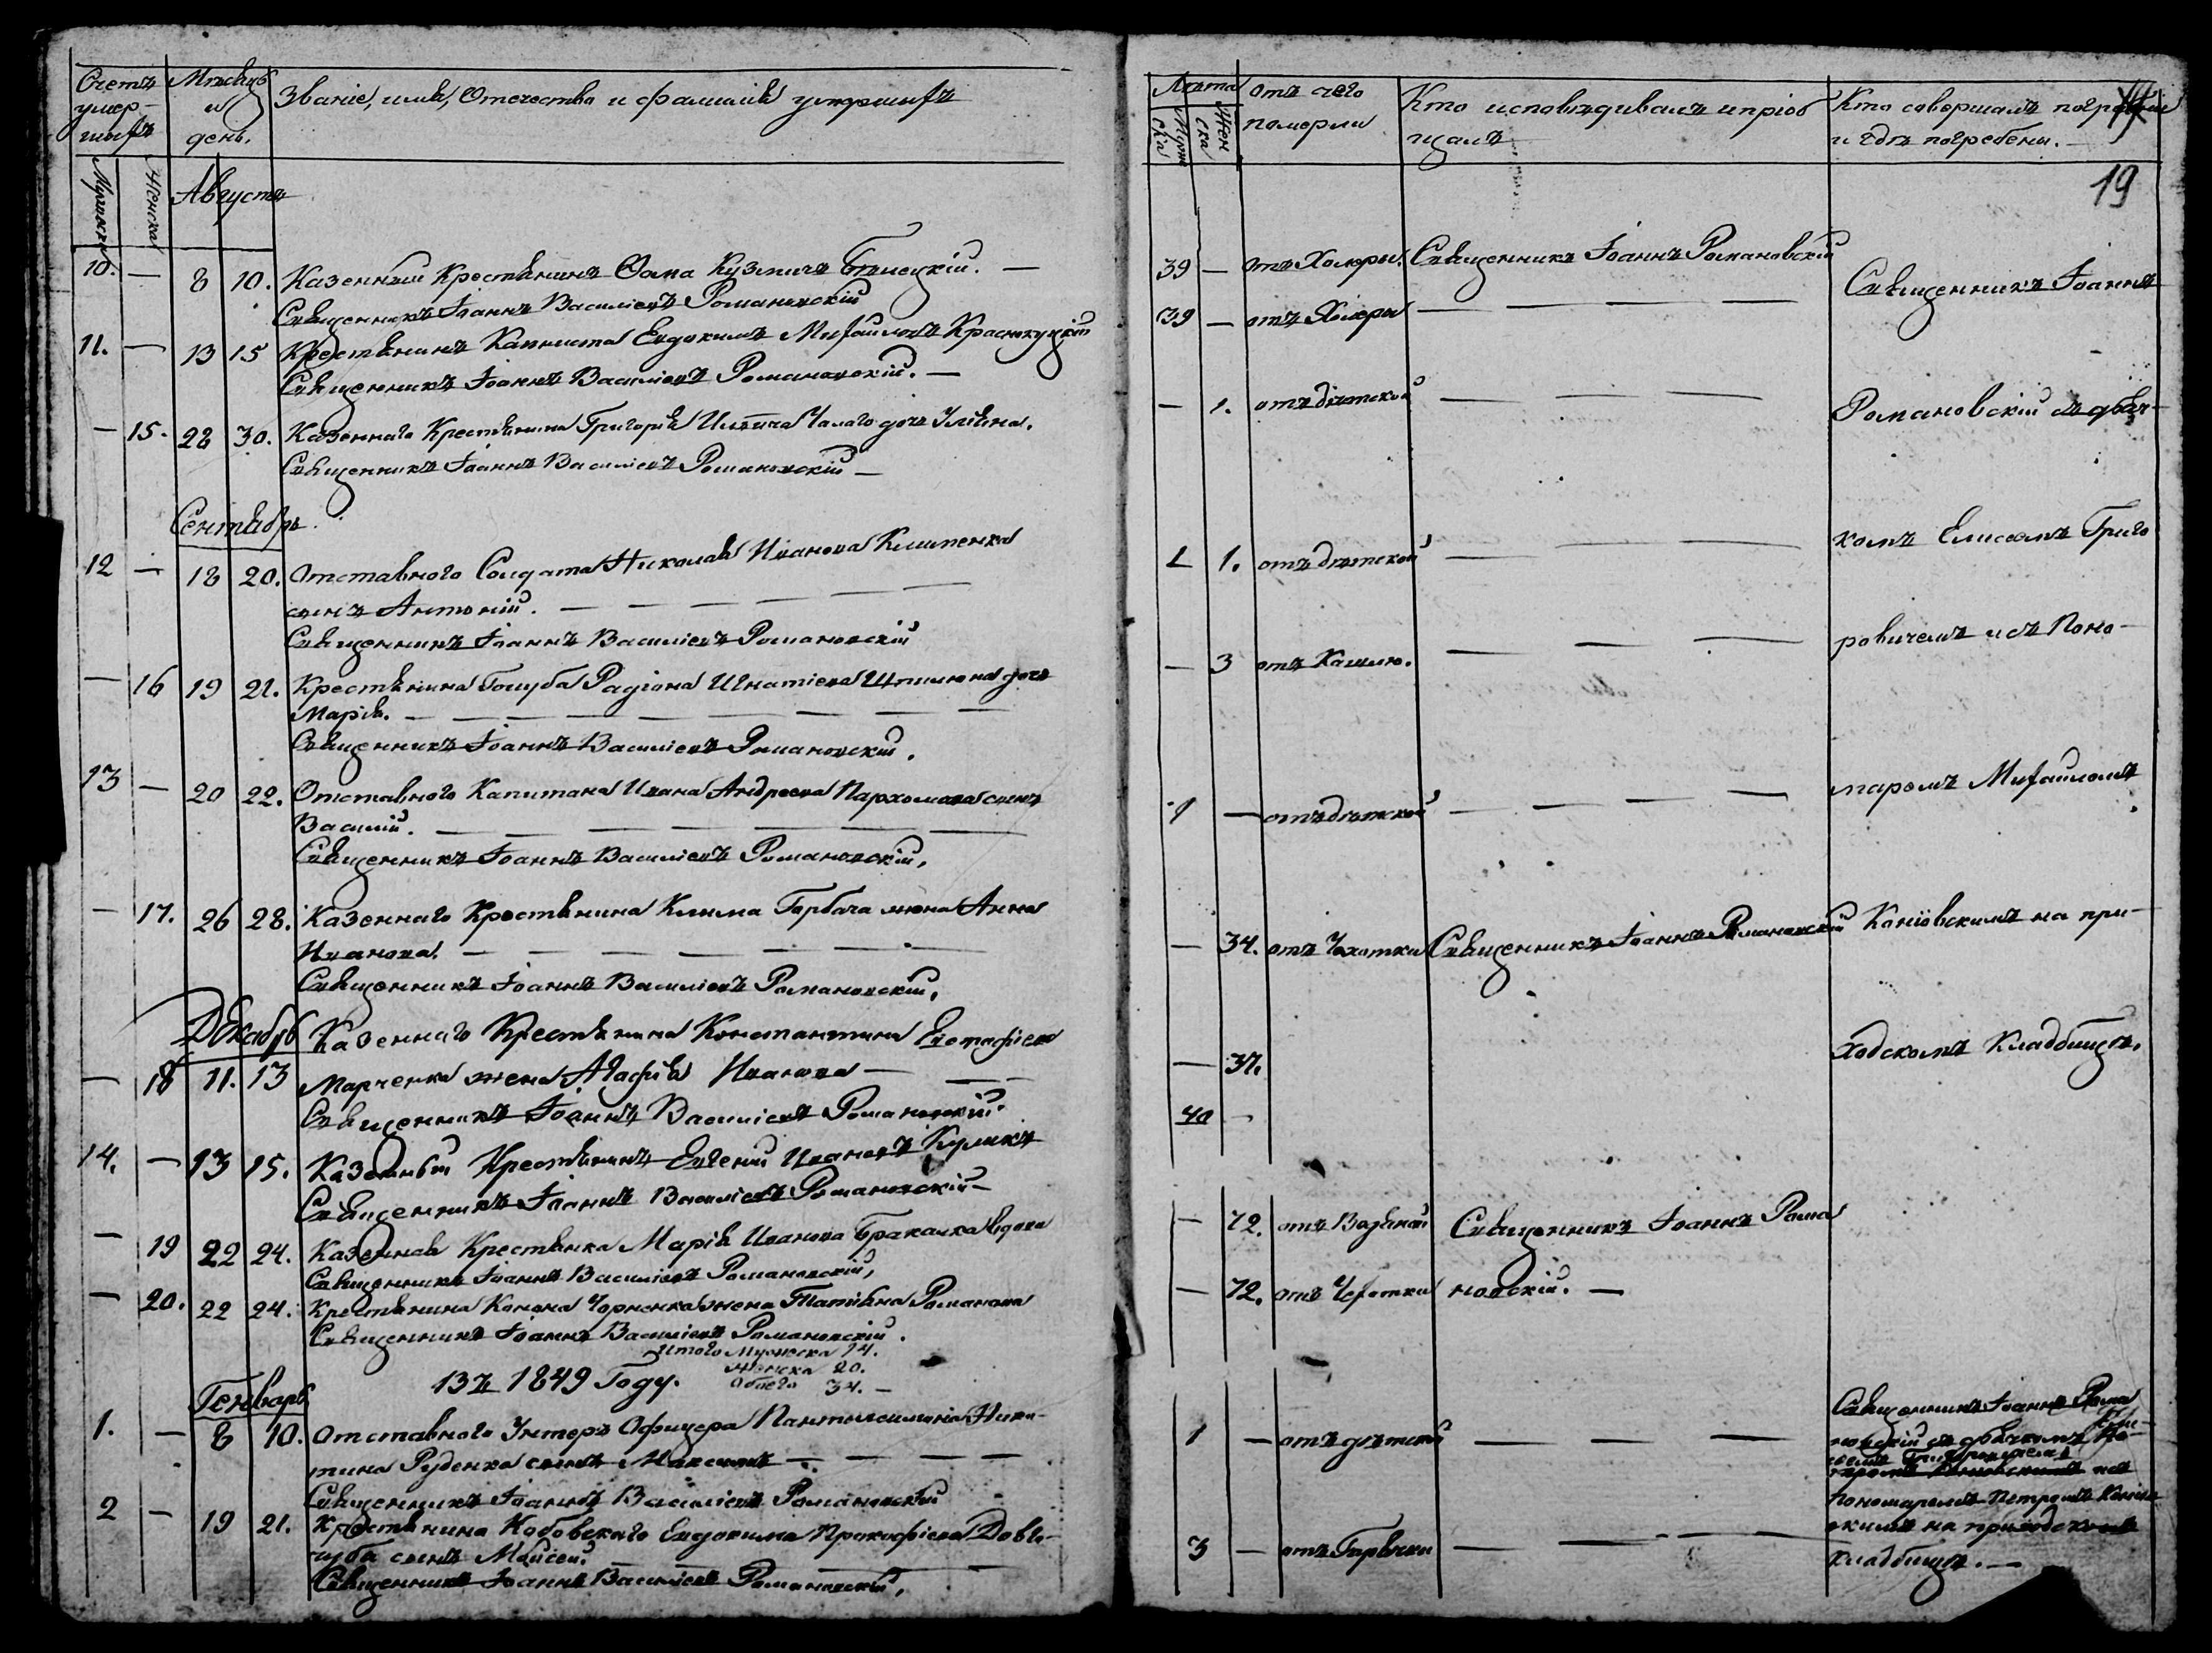 Счетъ
умер-
шихъ
Мѣсяцъ
и
день.
Званіе, имя, Отечество и фамилія умершихъ
Мужеска
Женска
Августъ
10. — 8 10. Казенный Крестьянинъ Ѳома Кузмичъ Билецкій. —
Священникъ Іоаннъ Василіевъ Романовскій
11. — 13 15 Крестьянинъ Капниста Евдокимъ Михайловъ Краснокуцкій
Священникъ Іоаннъ Василіевъ Романовскій. —
— 15. 28 30. Казеннаго Крестьянина Григорія Чалаго дочь Уліяна.
Священникъ Іоаннъ Василіевъ Романовскій —
Сентябрь.
12 — 18 20. Отставного Солдата Николая Иванова Клименка
сынъ Антоній. —
Священникъ Іоаннъ Василіевъ Романовскій
— 16 19 21. Крестьянина Голуба Радіона Игнатіева дочь
Марія. —
Священникъ Іоаннъ Василіевъ Романовскій.
13 — 20 22. Отставного Капитана Ивана Андреева Пархомова сынъ
Василій. —
Священникъ Іоаннъ Василіевъ Романовскій,
— 17. 26 28. Казеннаго Крестьянина Клима Горбача жена Анна
Иванова. —
Священникъ Іоаннъ Василіевъ Романовскій,
Декабрь Казеннаго Крестьянина Константина Евстафіева
— 18 11. 13 Марченка жена Агафія Иванова —
Священникъ Іоаннъ Василіевъ Романовскій.
14. — 13 15. Казенный Крестьянинъ Евгеній Ивановъ Куликъ
Священникъ Іоаннъ Василіевъ Романовскій —
— 19 22 24. Казенная Крестьянка Марія Иванова вдова
Священникъ Іоаннъ Василіевъ Романовскій,
— 20. 22 24. Крестьянина Конона Чорненка жена Татіяна Романова
Священникъ Іоаннъ Василіевъ Романовскій.
Итого Мужеска 14.
Женска 20.
Обоего 34. —
1849 Году.
Генварь
1. — 8 10. Отставного Унтеръ Офицера Пантелеимона Ники-
тина Руденка сынъ Максимъ —
Священникъ Іоаннъ Василіевъ Романовскій
2 — 19 21. Крестьянина Кобовскаго Евдокима Прокофіева Довго-
чуба сынъ Моисей.
Священникъ Іоаннъ Василіевъ Романовскій,
Лѣта
Муже
ска
Жен
ска
отъ чего
померли
Кто исповѣдивалъ и пріоб
щалъ
Кто совершалъ погребеніе
и гдѣ погребены. —
19
39 — отъ Холеры. Священникъ Іоаннъ Романовскій
Священникъ Іоаннъ
39 — отъ Холеры —
— 1. отъ дѣтской —
Романовскій съ дьяч-
1. отъ дѣтской —
комъ Елисеемъ Григо
— 3 отъ Кашлю. —
ровичемъ и съ Поно-
1 — отъ дѣтской —
маромъ Михаиломъ
— 34. отъ Чахотки Священникъ Іоаннъ Романовскій
Коніовскимъ на при-
— 37.
ходскомъ Кладбищѣ.
40 —
— 72. отъ Водяной Священникъ Іоаннъ Рома
— 72. отъ Чехотки новскій. —
1 — отъ дѣтской —
Священникъ Іоаннъ Рома
новскій съ дьячкомъ
Григоровичемъ
пономаремъ Петромъ
скимъ на приходскомъ
3 — отъ Гарячки —
кладбищѣ. —